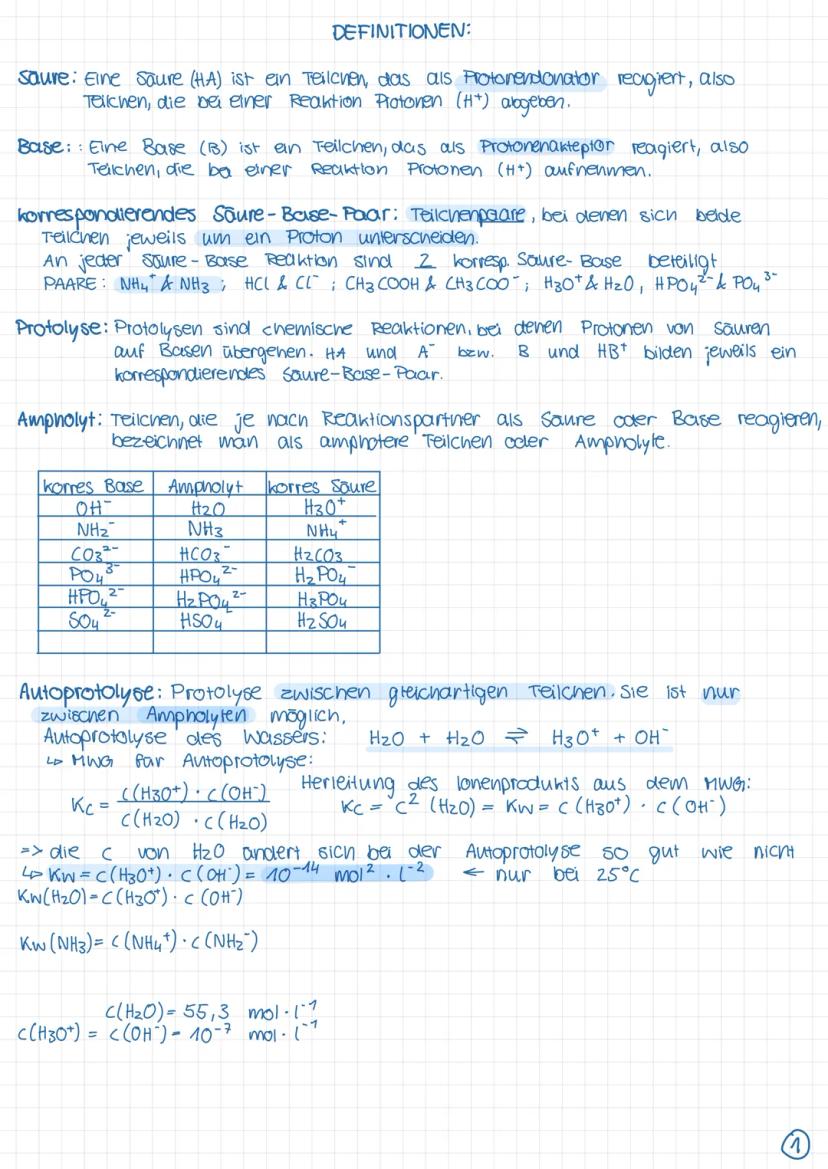 DEFINITIONEN:
Säure: Eine Säure (HA) ist ein Teilchen, das als Protonendonator reagiert, also
Teilchen, die bei einer Reaktion Protonen (H⁺) abgeben.
Base: : Eine Base (B) ist ein Teilchen, das als Protonenakteptor reagiert, also
Teilchen, die bei einer Reaktion Protonen (H⁺) aufnehmen.
korrespondierendes Säure-Base-Paar: Teilchenpaare, bei denen sich beide
Teilchen jeweils um ein Proton unterscheiden.
An jeder Säure-Base Reaktion sind 2 korresp. Säure-Base beteiligt
PAARE: NH₄⁺ & NH₃ ; HCl & Cl⁻ ; CH₃COOH & CH₃COO⁻ ; H₃O⁺ & H₂O , HPO₄²⁻ & PO₄³⁻
Protolyse: Protolysen sind chemische Reaktionen, bei denen Protonen von Säuren
auf Basen übergehen. HA und A⁻ bzw. B und HB⁺ bilden jeweils ein
korrespondierendes Säure-Base-Paar.
Ampholyt: Teilchen, die je nach Reaktionspartner als Säure oder Base reagieren,
bezeichnet man als amphotere Teilchen oder Ampholyte.
korres Base Ampholyt korres Säure
OH⁻ H₂O H₃O⁺
NH₂⁻ NH₃ NH₄⁺
CO₃²⁻ HCO₃⁻ H₂CO₃
PO₄³⁻ HPO₄²⁻ H₂PO₄⁻
HPO₄²⁻ H₂PO₄²⁻ H₃PO₄
SO₄²⁻ HSO₄⁻ H₂SO₄
Autoprotolyse: Protolyse zwischen gleichartigen Teilchen. Sie ist nur
zwischen Ampholyten möglich,
Autoprotolyse des Wassers: H₂O + H₂O ⇌ H₃O⁺ + OH⁻
↳ MWG für Autoprotolyse:
Kc = c(H₃O⁺) · c(OH⁻) / c(H₂O) · c(H₂O)
Herleitung des Ionenprodukts aus dem MWG:
Kc = c² (H₂O) = Kw = c(H₃O⁺) · c(OH⁻)
=> die c von H₂O ändert sich bei der Autoprotolyse so gut wie nicht
↳ Kw = c(H₃O⁺) · c(OH⁻) = 10⁻¹⁴ mol² · l⁻² ← nur bei 25°C
Kw(H₂O) = c(H₃O⁺) · c(OH⁻)
Kw(NH₃) = c(NH₄⁺) · c(NH₂⁻)
c(H₂O) = 55,3 mol · l⁻¹
c(H₃O⁺) = c(OH⁻) = 10⁻⁷ mol · l⁻¹
1